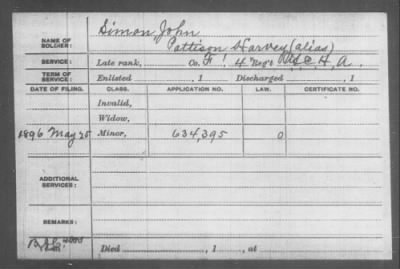 NAME OF SOLDIER: Simon, John
Pattison Harvey (alias)
SERVICE: Late rank, Co. F, 4 Reg't U.S.C.H.A.
TERM OF SERVICE: Enlisted , 1 Discharged , 1
DATE OF FILING. CLASS. APPLICATION NO. LAW. CERTIFICATE NO.
Invalid,
Widow,
1896 May 25 Minor, 634,395 O
ADDITIONAL SERVICES:
REMARKS:
Died , 1 , at